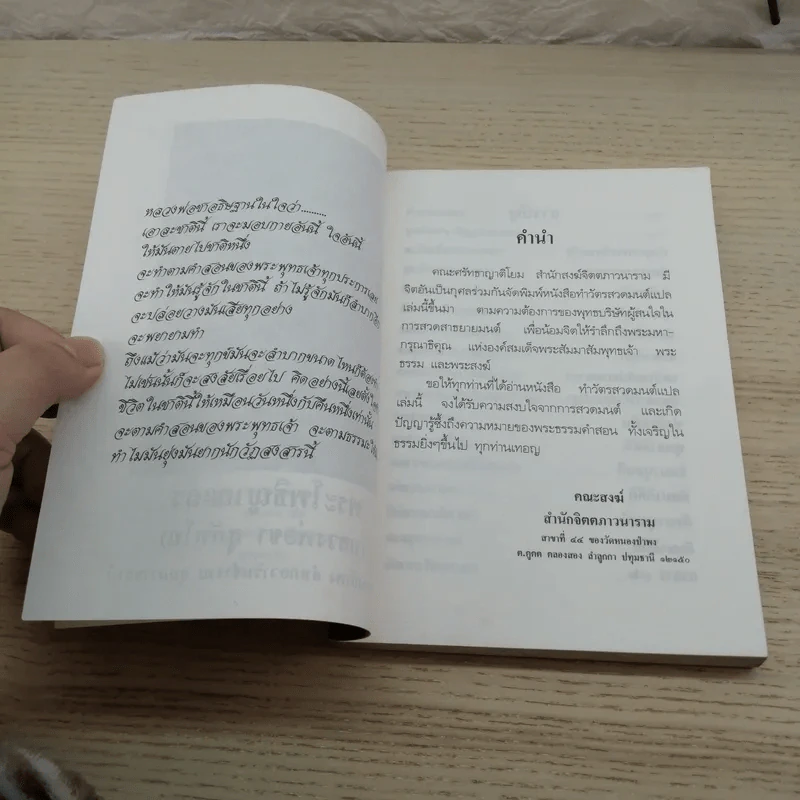 หลวงพ่อชาอธิษฐานในใจว่า.........
เอาละชาตินี้ เราจะมอบกายอันนี้ ใจอันนี้
ให้มันตายไปชาติหนึ่ง
จะทำตามคำสอนของพระพุทธเจ้าทุกประการเลย
จะทำให้มันรู้จักในชาตินี้ ถ้าไม่รู้จักมันก็ลำบากอีก
จะปล่อยวางมันเสียทุกอย่าง
จะพยายามทำ
ถึงแม้ว่ามันจะทุกข์มันจะลำบากขนาดไหนก็ต้อง
ไม่เช่นนั้นก็จะสงสัยเรื่อยไป คิดอย่างนี้เลยตั้งใจ
ชีวิตในชาตินี้ให้เหมือนวันหนึ่งกับคืนหนึ่งเท่านั้น
จะตามคำสอนของพระพุทธเจ้า จะตามธรรมะ
ทำไมมันยุ่งมันยากนักวัฏสงสารนี้
คำนำ
คณะศรัทธาญาติโยม สำนักสงฆ์จิตตภาวนาราม มี
จิตอันเป็นกุศลร่วมกันจัดพิมพ์หนังสือทำวัตรสวดมนต์แปล
เล่มนี้ขึ้นมา ตามความต้องการของพุทธบริษัทผู้สนใจใน
การสวดสาธยายมนต์ เพื่อน้อมจิตให้รำลึกถึงพระมหา-
กรุณาธิคุณ แห่งองค์สมเด็จพระสัมมาสัมพุทธเจ้า พระ
ธรรม และพระสงฆ์
ขอให้ทุกท่านที่ได้อ่านหนังสือ ทำวัตรสวดมนต์แปล
เล่มนี้ จงได้รับความสงบใจจากการสวดมนต์ และเกิด
ปัญญารู้ซึ้งถึงความหมายของพระธรรมคำสอน ทั้งเจริญใน
ธรรมยิ่งๆขึ้นไป ทุกท่านเทอญ
คณะสงฆ์
สำนักจิตตภาวนาราม
สาขาที่ ๔๔ ของวัดหนองป่าพง
ต.คูคต คลองสอง ลำลูกกา ปทุมธานี ๑๒๑๕๐